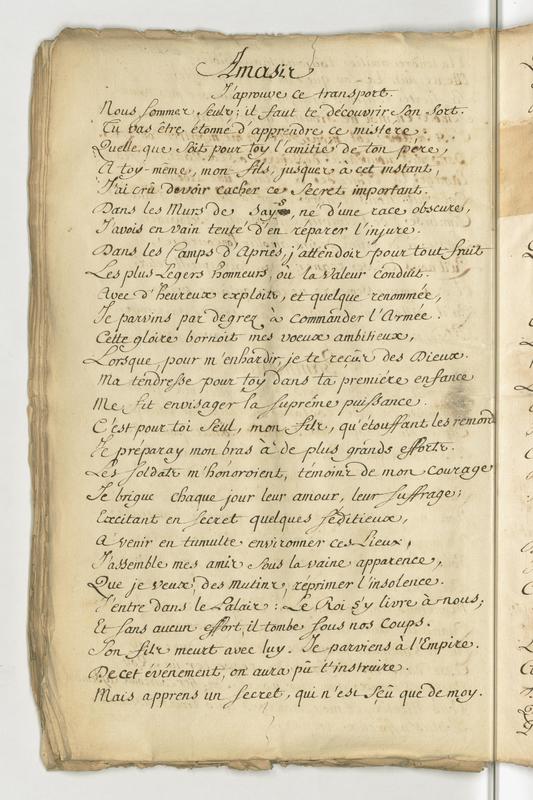 Amasis
J'aprouve ce transport.
Nous sommes seuls; il faut te découvrir son sort.
Tu vas être étonné d'apprendre ce mistere.
Quelle que soit pour toy l'amitié de ton pére,
A toy-même, mon fils, jusques à cet instant,
J'ai crû devoir cacher ce Secret important.
Dans les Murs de Says né d'une race obscure,
J'avois en vain tenté d'en réparer l'injure.
Dans les Camps d'Apriès, j'attendois pour tout fruit
Les plus légers honneurs, où la valeur conduit.
Avec d'heureux exploits, et quelque renommée,
Je parvins par degrez à commander l'Armée.
Cette gloire bornoit mes voeux ambitieux,
Lorsque, pour m'enhardir, je te reçus des Dieux.
Ma tendresse pour toy dans ta premiére enfance
Me fit envisager la suprême puissance.
C'est pour toi seul, mon fils, qu'étouffant les remords
Je préparay mon bras à de plus grands efforts.
Les soldats m'honoroient, témoins de mon courage
Je brigue chaque jour leur amour, leur suffrage;
Excitant en secret quelques séditieux,
A venir en tumulte environner ces Lieux,
J'assemble mes amis sous la vaine apparence,
Que je veux, des mutins, réprimer l'insolence.
J'entre dans le Palais: Le Roi s'y livre à nous;
Et sans aucun effort, il tombe sous nos coups.
Son fils meurt avec luy. Je parviens à l'Empire.
De cet événement, on aura pû t'instruire.
Mais apprens un secret, qui n'est sçû que de moy.